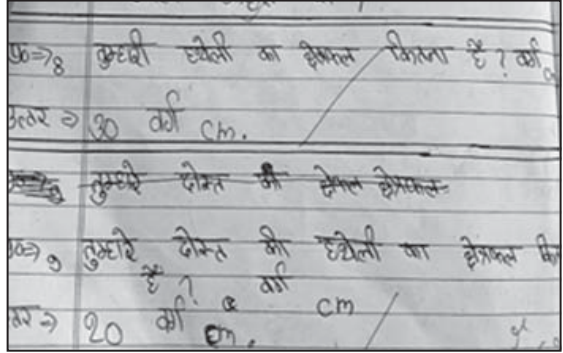 प्र०⇒8 तुम्हारी हथेली का क्षेत्रफल कितना है? वर्ग
उत्तर ⇒ 30 वर्ग cm.
तुम्हारे दोस्त की क्षेत्रफल
प्र०⇒9 तुम्हारे दोस्त की हथेली का क्षेत्रफल
है? वर्ग cm
उत्तर ⇒ 20 वर्ग cm.